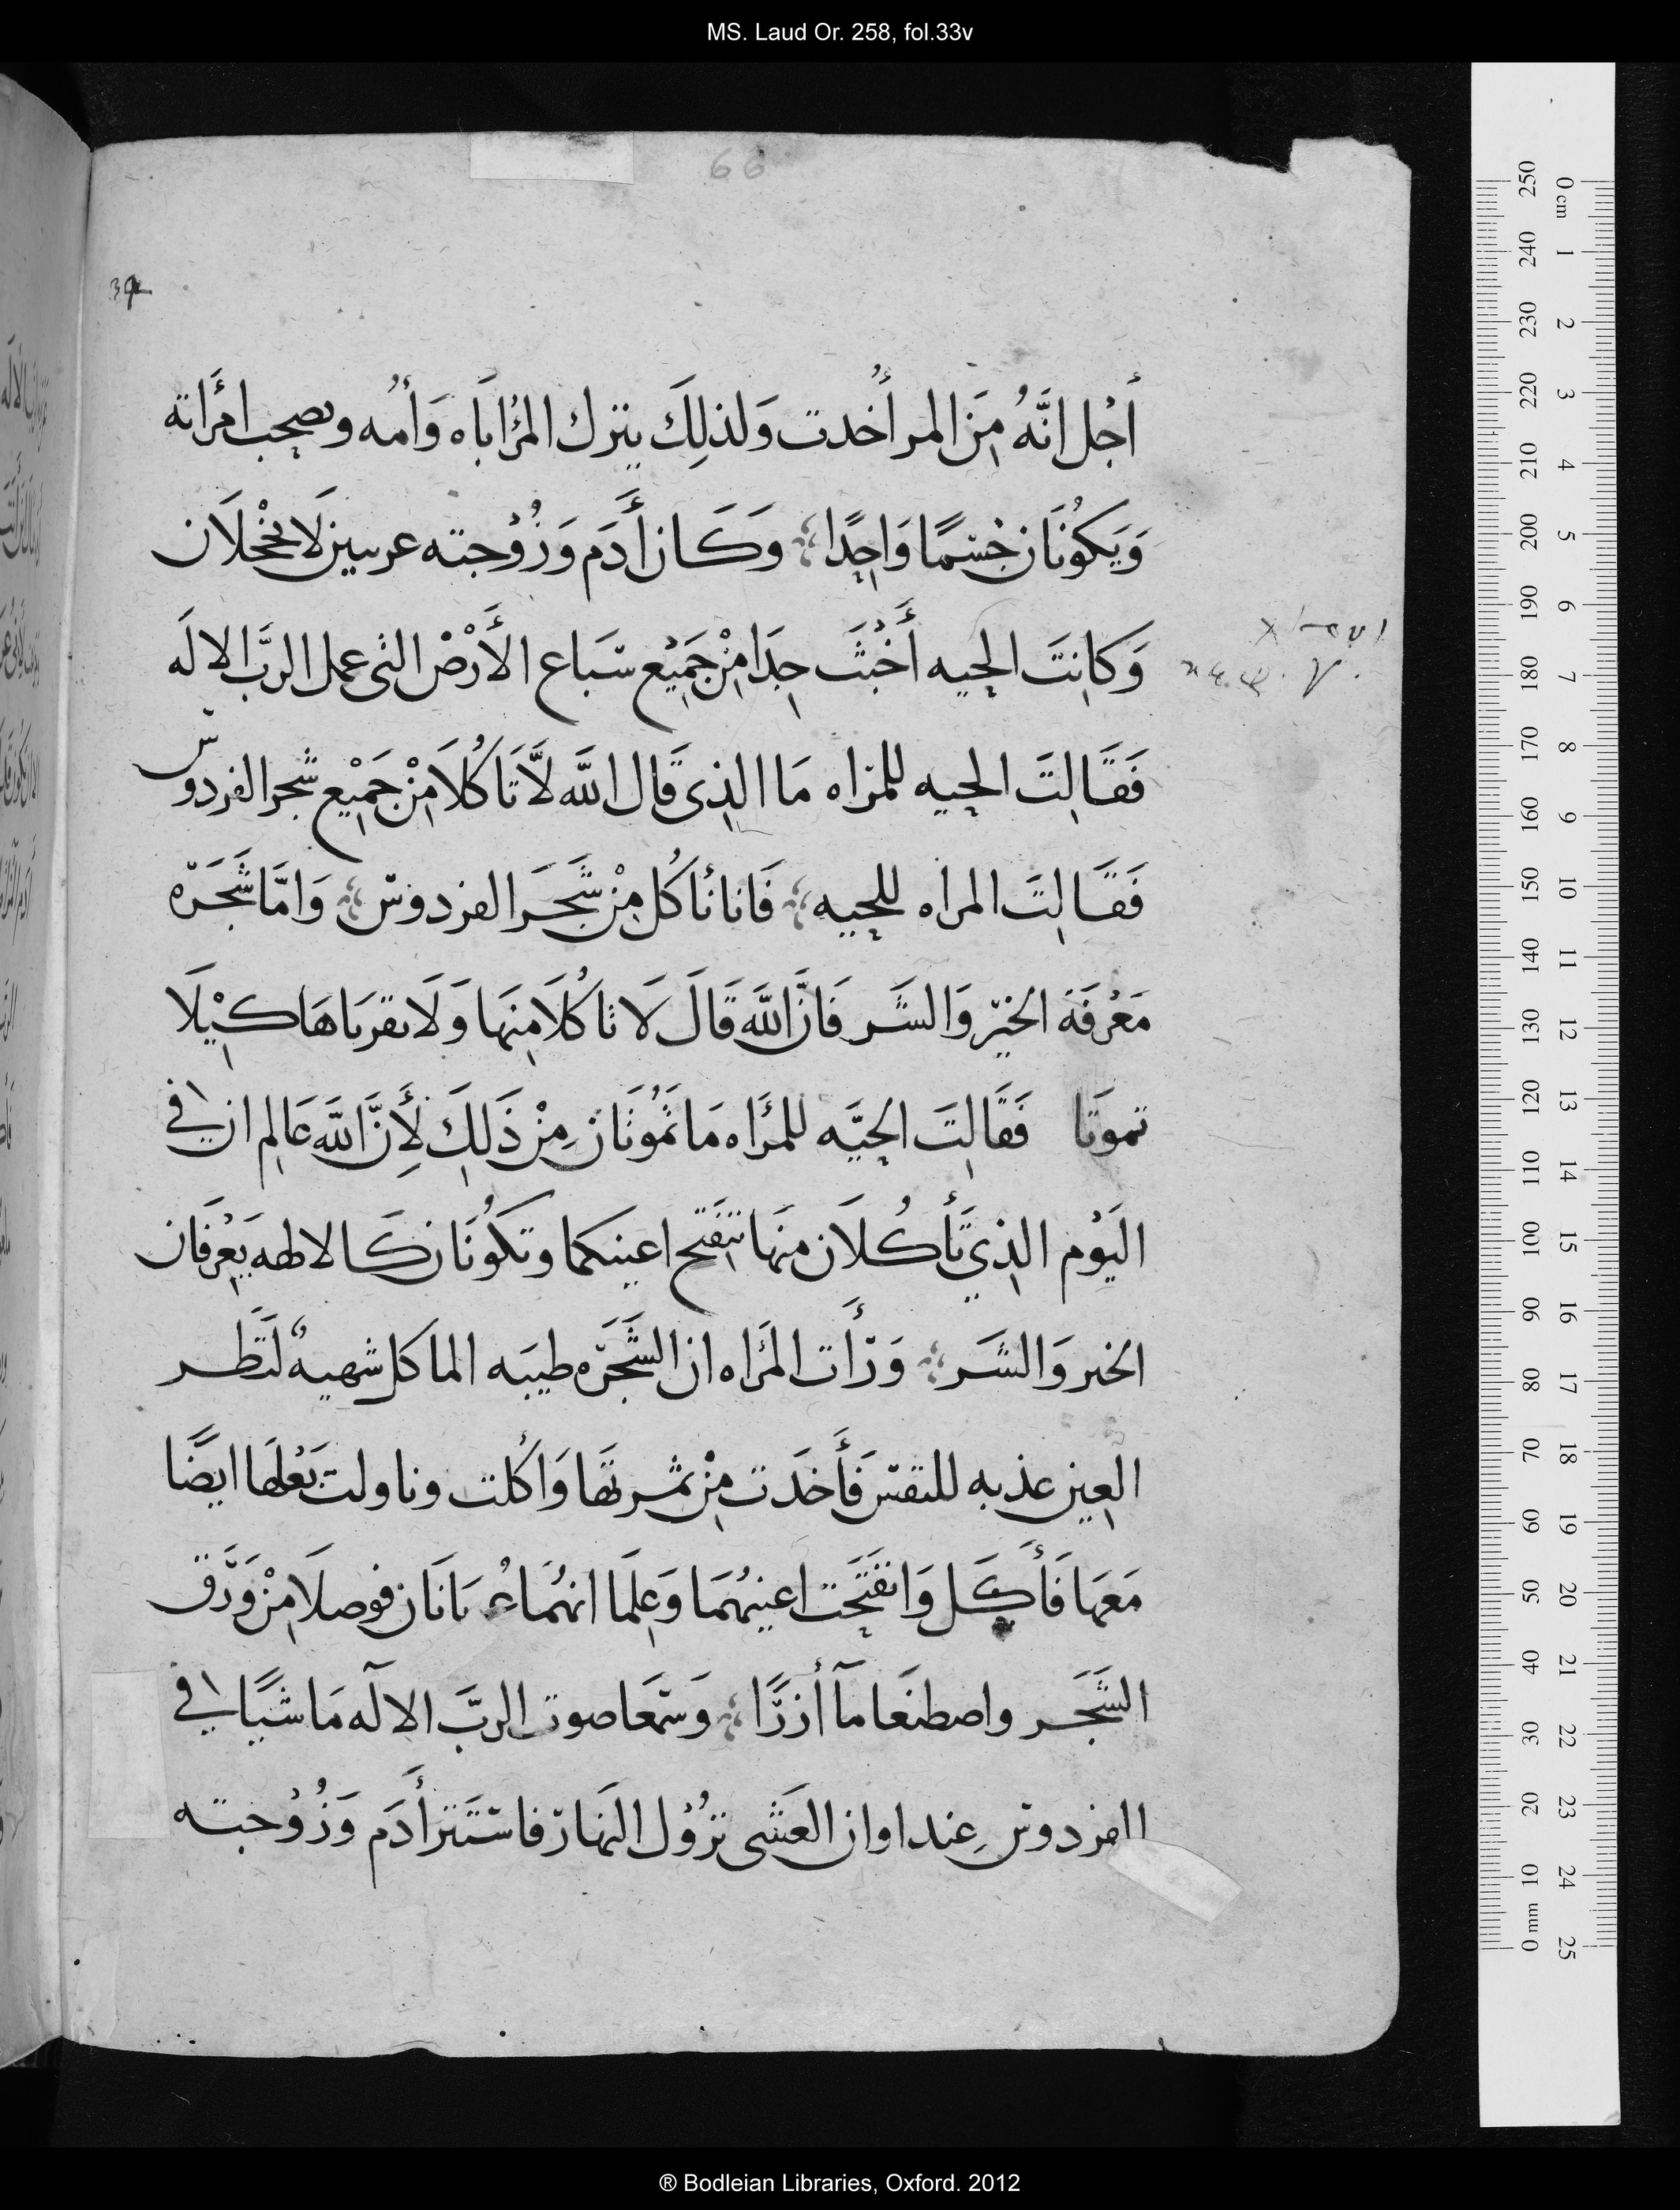 MS. Laud Or. 258, fol.33v
66
أجْل انَّهُ مِنَ المر أُخدت وَلذلِكَ يترك المرُا اَباه وَأمُه ويصحب امَرَاته
وَيَكُونَان جْسَمًا وَاحِدًا وَكَان أَدَم وَزُوْجته عرسين لَا يخْجلَان
وَكانِتَ الحِيه أَخْبثَ جِدَا مِنْ جَمِيْع سَباع الأَرْضْ التى عمل الربَّ الالَه
فَقَالِتَ الحِيه للمَراه مَا الذِى قَال اللَّه لَّا تَاكُلَا مِنْ جَمِيْع شَجر الفردوس
فَقَالِتَ المراه للحِيه فَانا نُاكُل مِنْ شَجَر الفردوس وَامَّا شَجَرَه
مَعْرفَة الخيّر وَالشَر فَانَّ اللَّه قَالَ لَا تاكُلَا مِنَها وَلَا تقربَاهَا كِيْلَا
تموتَا فَقَالِتَ الحِيَّه للمَرَاه مَا تَمُوْتَان مِنْ ذَلِكَ لِأَنَّ اللَّه عَالِم ان في
اليَوُم الذِي تَأكُلَان مِنَها تنفَتح اعينكما وتكُونَان كَالالهه يَعِرْفَان
الخير وَالشَر وَرَأَت المَرَاه ان الشَجَرَه طيبَه الماكل شهيهْ لَتَظر
العِين عذبه للنفس فَأَخَدَت مِنْ ثمرتهَا وَاكُلت وناولت بَعْلَها ايضًا
مَعَها فَأَكَل وَانفَتَحت اعينُهمَا وَعِلَما انهُمَا عُريَانَان فوصلَا مِنْ وَرَق
الشَجَر واصطنَعا مآ أزرًا وَسمَعا صوت الربَّ الالَه مَاشيًا في
الفردوس عِند اوان العَشى نزوُل النَهار فاسَتَتر أَدَم وَزُوْجته
® Bodleian Libraries, Oxford. 2012